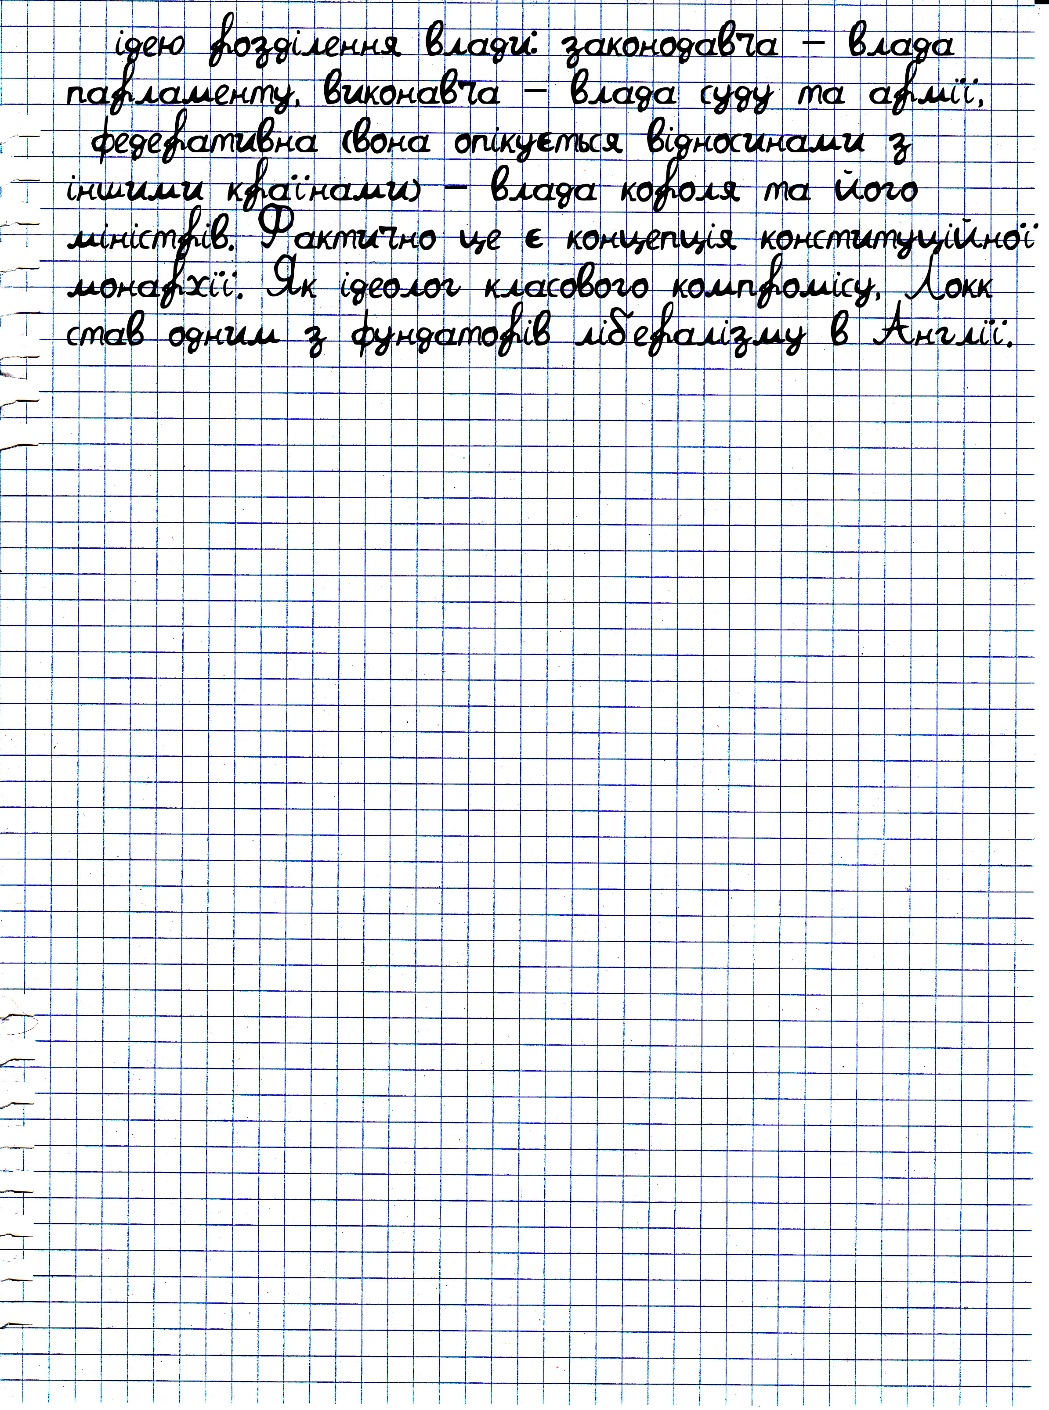 ідею розділення влади: законодавча – влада
парламенту, виконавча – влада суду та армії,
федеративна (вона опікується відносинами з
іншими країнами) – влада короля та його
міністрів. Фактично це є концепція конституційної
монархії. Як ідеолог класового компромісу, Локк
став одним з фундаторів лібералізму в Англії.